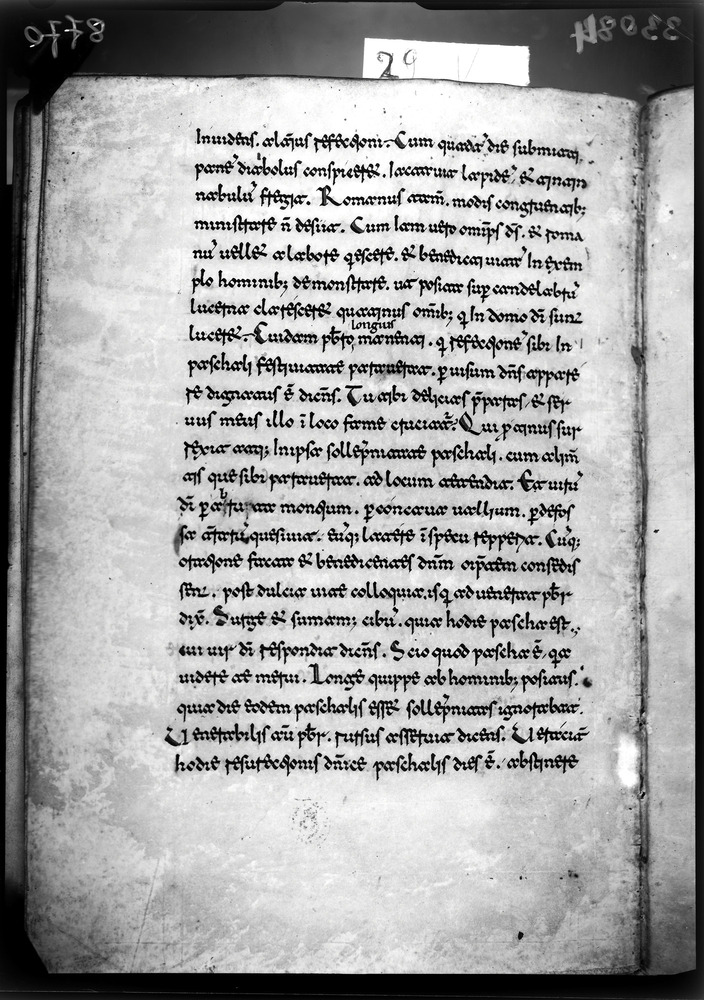 8770
33084
29
Inuidens. alterius refectioni. Cum quadā die submitti
panē diabolus conspiceret. Iactauit lapidē. & tintin
nabulū fregit. Romanus tam̄. modis congruentib;
ministrare n̄ desiit. Cum iam uero omīps ds̄. & roma
nū uellet a labore qescere. & benedicti uitā In exem
plo hominib; demonstrare. ut posita sup candelabrū
lucerna claresceret quatinus om̄ib; q In domo dī sunt
luceret. Cuidam p̄b̄ro
longius
manenti. q refectionē sibi In
paschali festiuitate parauerat. p uisum dn̄s appare
re dignatus ē dicēns. Tu tibi delicias p̄paras. & ser
uus meus illo ī loco fame cruciat̄. Qui ptinus sur
rexit atq; Inipsa sollēpnitate paschali. cum alim̄
tis que sibi parauerat. ad locum tetendit. Et uirū
dī p abrupta montium. p concaua uallium. p defos
sa t̄rarū quesiuit. eūq; latere ī specu repperit. Cūq;
oratione facta & benedicentes dn̄m oīpt̄em consedis
sent. post dulcia uite colloquia. isq aduenerat p̄b̄r
dix̄. Surge & sumam; cibū. quia hodie pascha est.
cui uir dī respondit dicēns. Scio quod pascha ē. qa
uidere te merui. Longe quippe ab hominib; positus.
quia die eodem paschalis esset sollēpnitas ignorabat.
Uenerabilis aū p̄b̄r. rursus asseruit dicens. Ueraciā
hodie resurectionis dn̄ice paschalis dies ē. abstinere